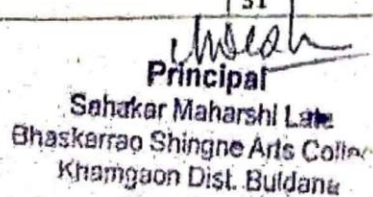 51
Principal
Sahakar Maharshi Late
Bhaskarrao Shingne Arts Colle
Khamgaon Dist. Buldana